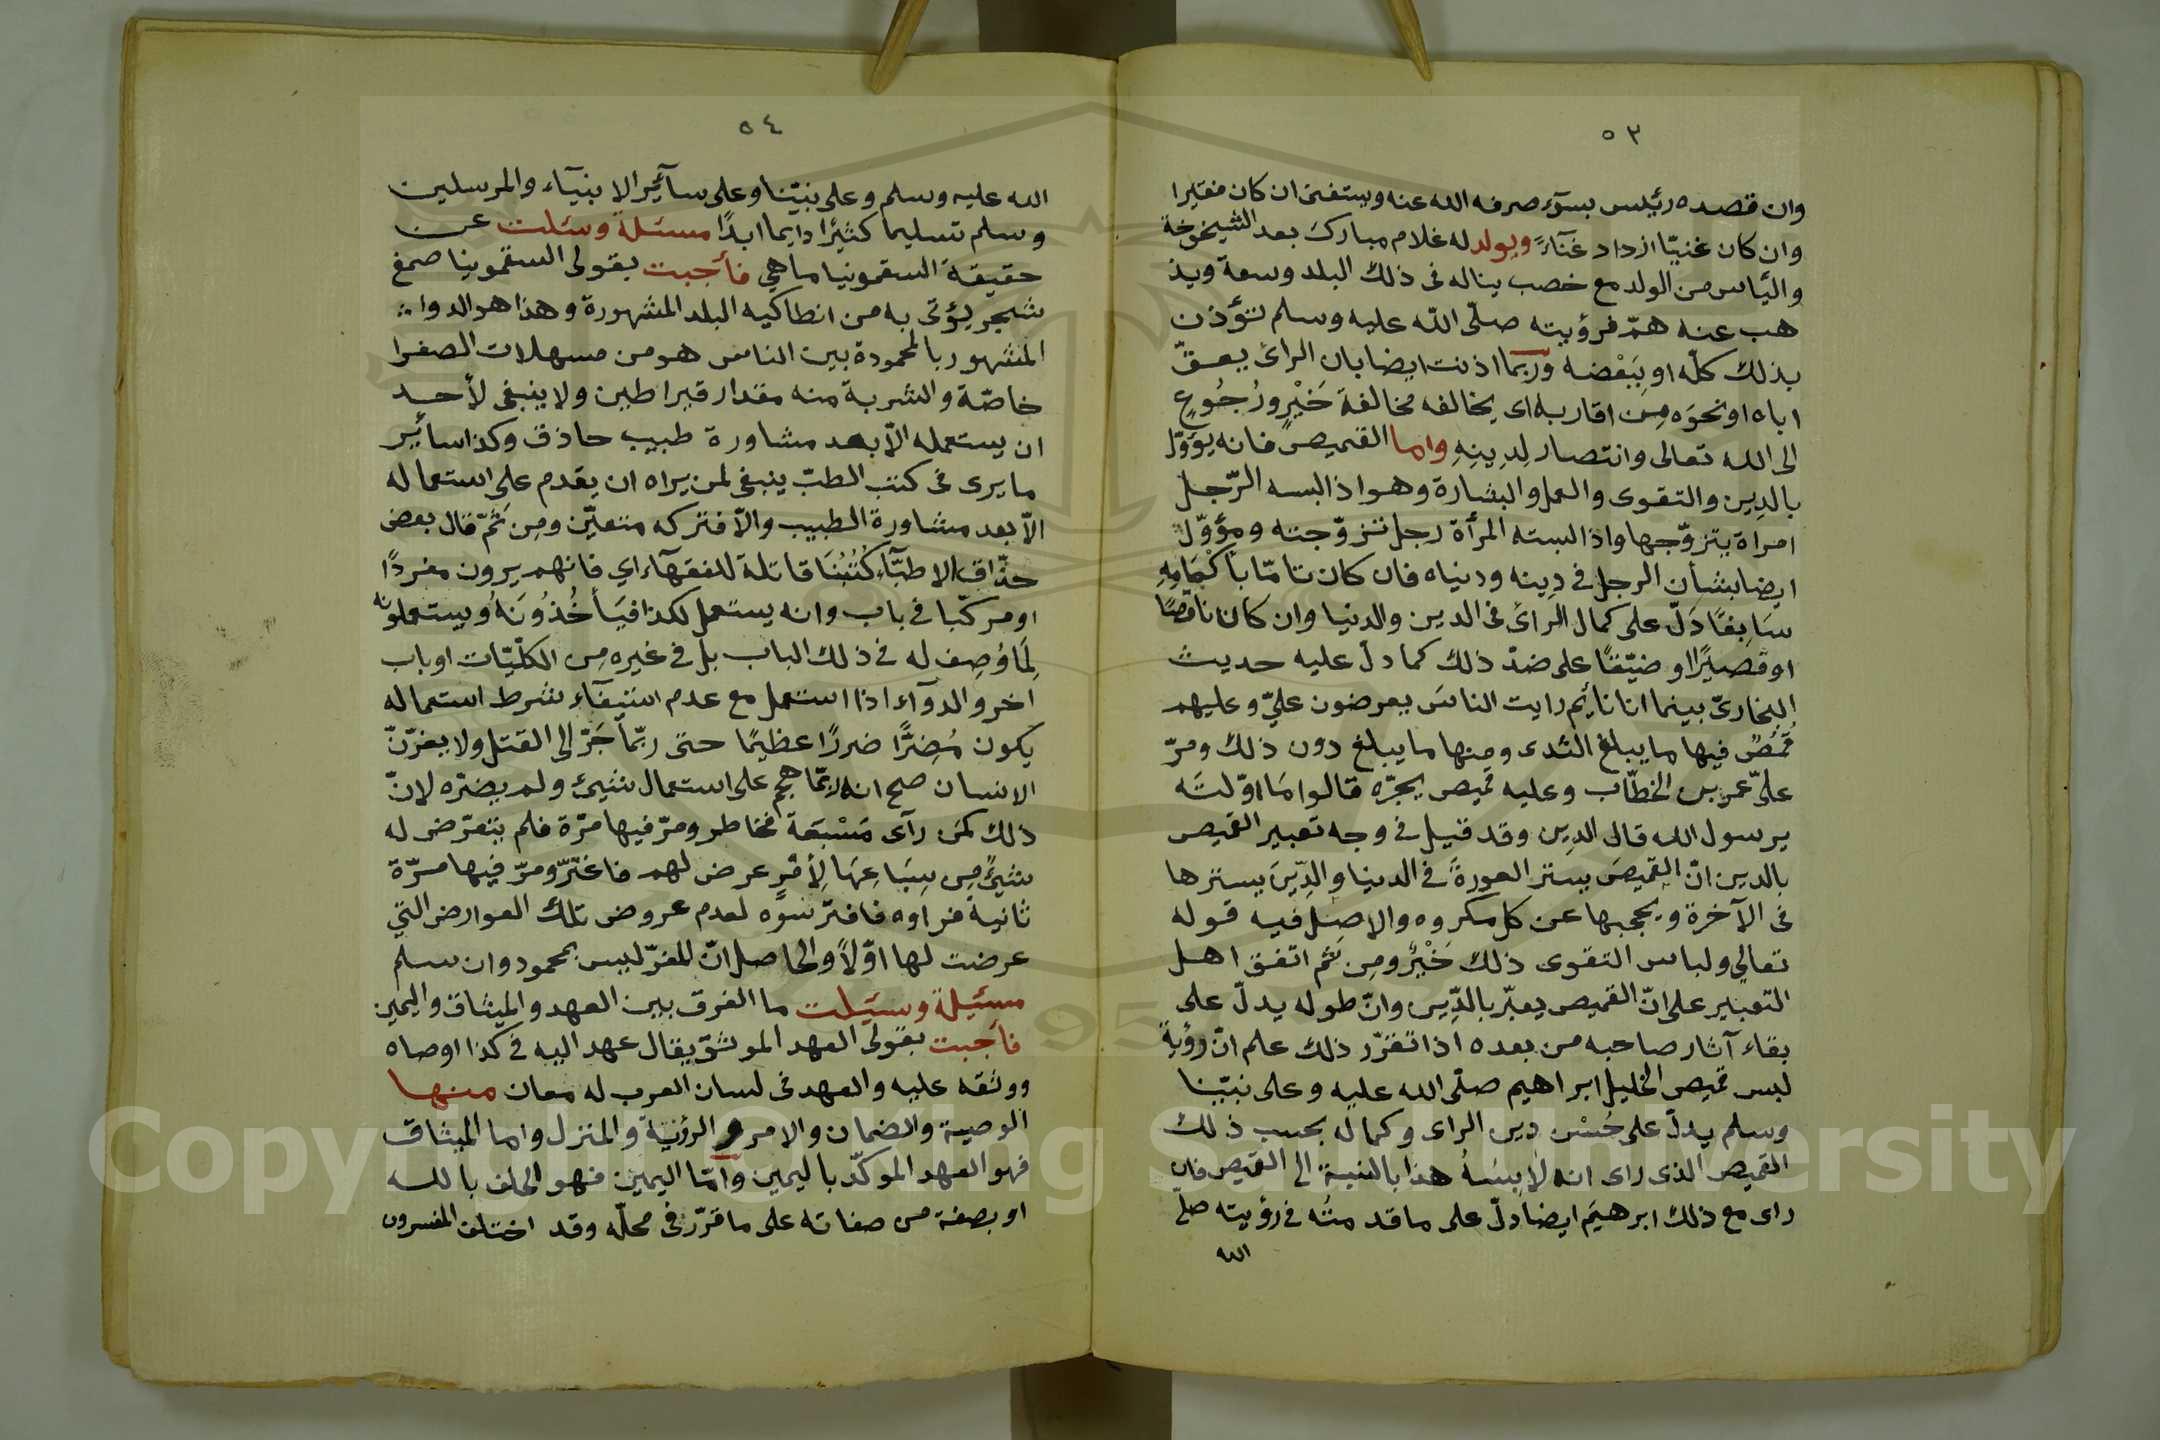 ٥٣
وان قصده رئيس بسوء صرفه الله عنه ويستغنى ان كان فقيرا
وان كان غنيّا ازداد غنآءً ويولد له غلام مبارك بعد الشيخوخة
والياس من الولد مع خصب يناله فى ذلك البلد وسعة ويذ
هب عنه همّ فرؤيته صلّى اللّه عليه وسلم تؤذن
بذلك كلّه او بِبَعْضه وربّما اذنت ايضا بان الراى يعقّ
اباه او نحوَه مِن اقاربه اى يخالفه مخالفة خَيْرٍ ورُجُوعٍ
الى الله تعالى وانتصار لِدِينِهِ واما القميص فانه يؤوّل
بالدِين والتقوى والعمل والبشارة وهو اذا لبسه الرّجل
امراة يتزوّجها واذا لبسته المرأة رجل تزوّجته ومؤوّل
ايضا بشأن الرجل فى دِينه ودنياه فان كان تامّا بأَكْمَامِهِ
سَابِغًا دَلّ على كمال الراىً فى الدين والدنيا وان كان ناقصًا
او قصيرًا او ضيّقًا على ضدّ ذلك كما دلّ عليه حديث
البخارىّ بينما انا نائِم رايت الناسَ يعرضون علىّ وعليهم
قُمُصٌ فيها ما يبلغ الثدى ومنها ما يبلغ دون ذلك ومرّ
علىّ عمر بن الخطّاب وعليه قميص يجرّه قالوا مَا اوّلتَه
يرسول الله قال الدِين وقد قيل فى وجه تعبير القميص
بالدين انّ القميصَ يستر العورةَ فى الدنيا والدِّينَ يسترها
فى الآخرة ويحجبها عن كل مكروه والاصل فيه قوله
تعالي ولباس التقوى ذلك خَيْرٌ ومِن ثَم اتفق اهل
التعبير على انّ القميص يعبّر بالدِّين وانّ طوله يدلّ على
بقاء آثار صاحبه من بعده اذا تقرّر ذلك علم انّ رؤية
لبس قميص الخليل ابراهيم صلّى الله عليه وعلى نبيّنا
وسلم يدلّ على حُسْن دين الراى وكماله بحسب ذلك
القميص الذى راى انه لَابِسُهُ هذا بالنسبة الى القميص فان
راى مع ذلك ابرهيمَ ايضا دلّ على ما قدمتُه فى رؤيته صلّى
الله
٥٤
الله عليه وسلم وعلى نبيّنا وعلى سآئِر الانبيآء والمرسلين
وسلم تسليما كثيرًا دايما ابدًا مسئلة وسئلت عن
حقيقة السقمونيا ما هي فأجبت بقولى السقمونيا صمغ
شجر يؤتى به من انطاكيه البلد المشهورة وهذا هو الدوا
المشهور بالمحمودة بين الناس هو من مسهلات الصفرا
خاصّة والشربة منه مقدار قيراطين ولا ينبغى لأحد
ان يستعمله الّا بعد مشاورة طبيب حاذق وكذا سائِر
ما يرى فى كتب الطبّ ينبغى لمن يراه ان يقدم على استعماله
الّا بعد مشاورة الطبيب والّا فتركه متعيّن ومِن ثَمّ قال بعض
حذّاق الاطبّآءِ كُتُبُنَا قاتلة للفقهآء اي فانهم يرون مفردًا
او مركّبا فى باب وانه يستعمل لكذا فيَأخُذُونَهُ ويستعملونه
لِمَا وُصِف له فى ذلك الباب بل فى غيره مِن الكلّيّات او باب
اخر والدوآء اذا استعمل مع عدم استيفآء شرط استعماله
يكون مُضِرًّا ضررًا عظيمًا حتى ربّما جَرّ الى القتل ولا يغرّنّ
الانسان صح انه ربّما هجم على استعمال شيئ ولم يضرّه لانّ
ذلك كمَن رآى مَسْبَعَة مخاطر ومرّ فيها مرّة فلم يتعرّض له
شيئٌ مِن سِبَاعِهَا لِأَمْرٍ عرض لهم فاغترّ ومرّ فيها مرّة
ثانية فراوه فافترسوُه لعدم عروض تلك العوارض التي
عرضت لها اوّلاً والحاصل انّ المغرّ ليس بمحمود وان سلم
مسئِيلة وسئِيلت ما الفرق بين العهد والميثاق واليمين
فأجبت بقولى العهد الموثق يقال عهد اليه فى كذا اوصاه
ووثقه عليه والعهد فى لسان العرب له معان منها
الوصية والضمان والامر و الرؤية والمنزل واما الميثاق
فهو العهد الموكّد باليمين وامّا اليمين فهو الحلف بالله
او بصفة من صفاته على ما قرّر فى محلّه وقد اختلف المفسرون
Copyright © King Saud University